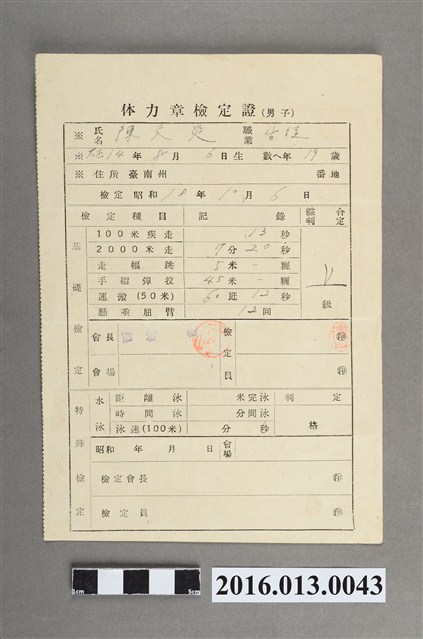 体力章檢定證(男子)
※ 氏名 陳 職業
※ 大正14年8月6日生 數ヘ年19歲
※ 住所 臺南州 番地
檢定 昭和18年10月6日
檢定種目 記錄 綜合判定
基礎檢定
100米疾走 13秒
2000米走 7分20秒
走幅跳 5米 - 糎
手榴彈投 45米 - 糎
運搬(50米) 60瓩12秒
懸垂屈臂 12回
級
會長 檢定員 ㊞
會場 ㊞
特殊檢定
水泳 距離泳 米完泳 判定
時間泳 分間泳
泳速(100米) 分 秒 格
昭和 年 月 日 會場
檢定會長 ㊞
檢定員 ㊞
1cm 5cm
2016.013.0043